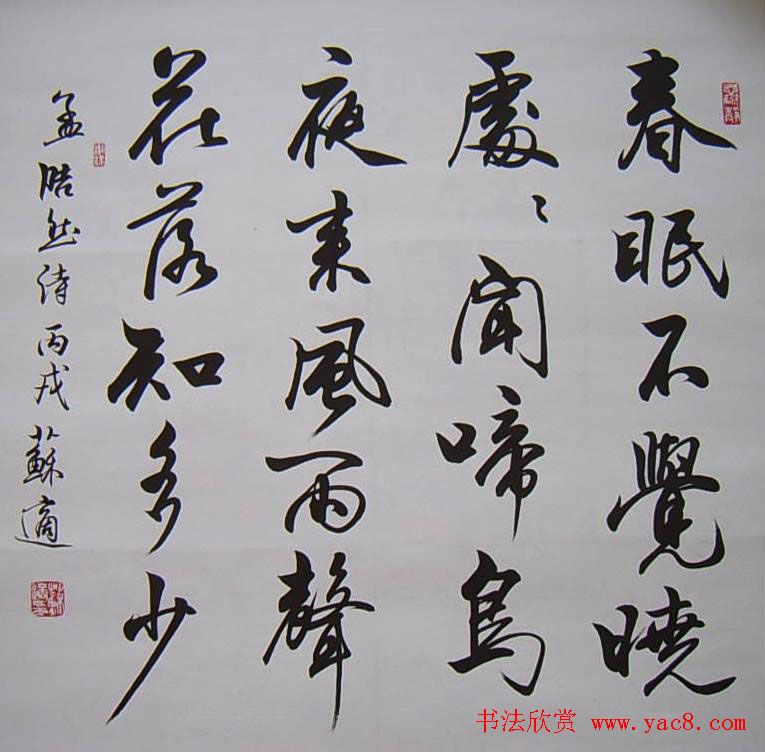 春眠不覺曉
處〻聞啼鳥
夜来風雨聲
花落知多少
孟浩然诗丙戌蘇適
书法欣赏 www.yac8.com